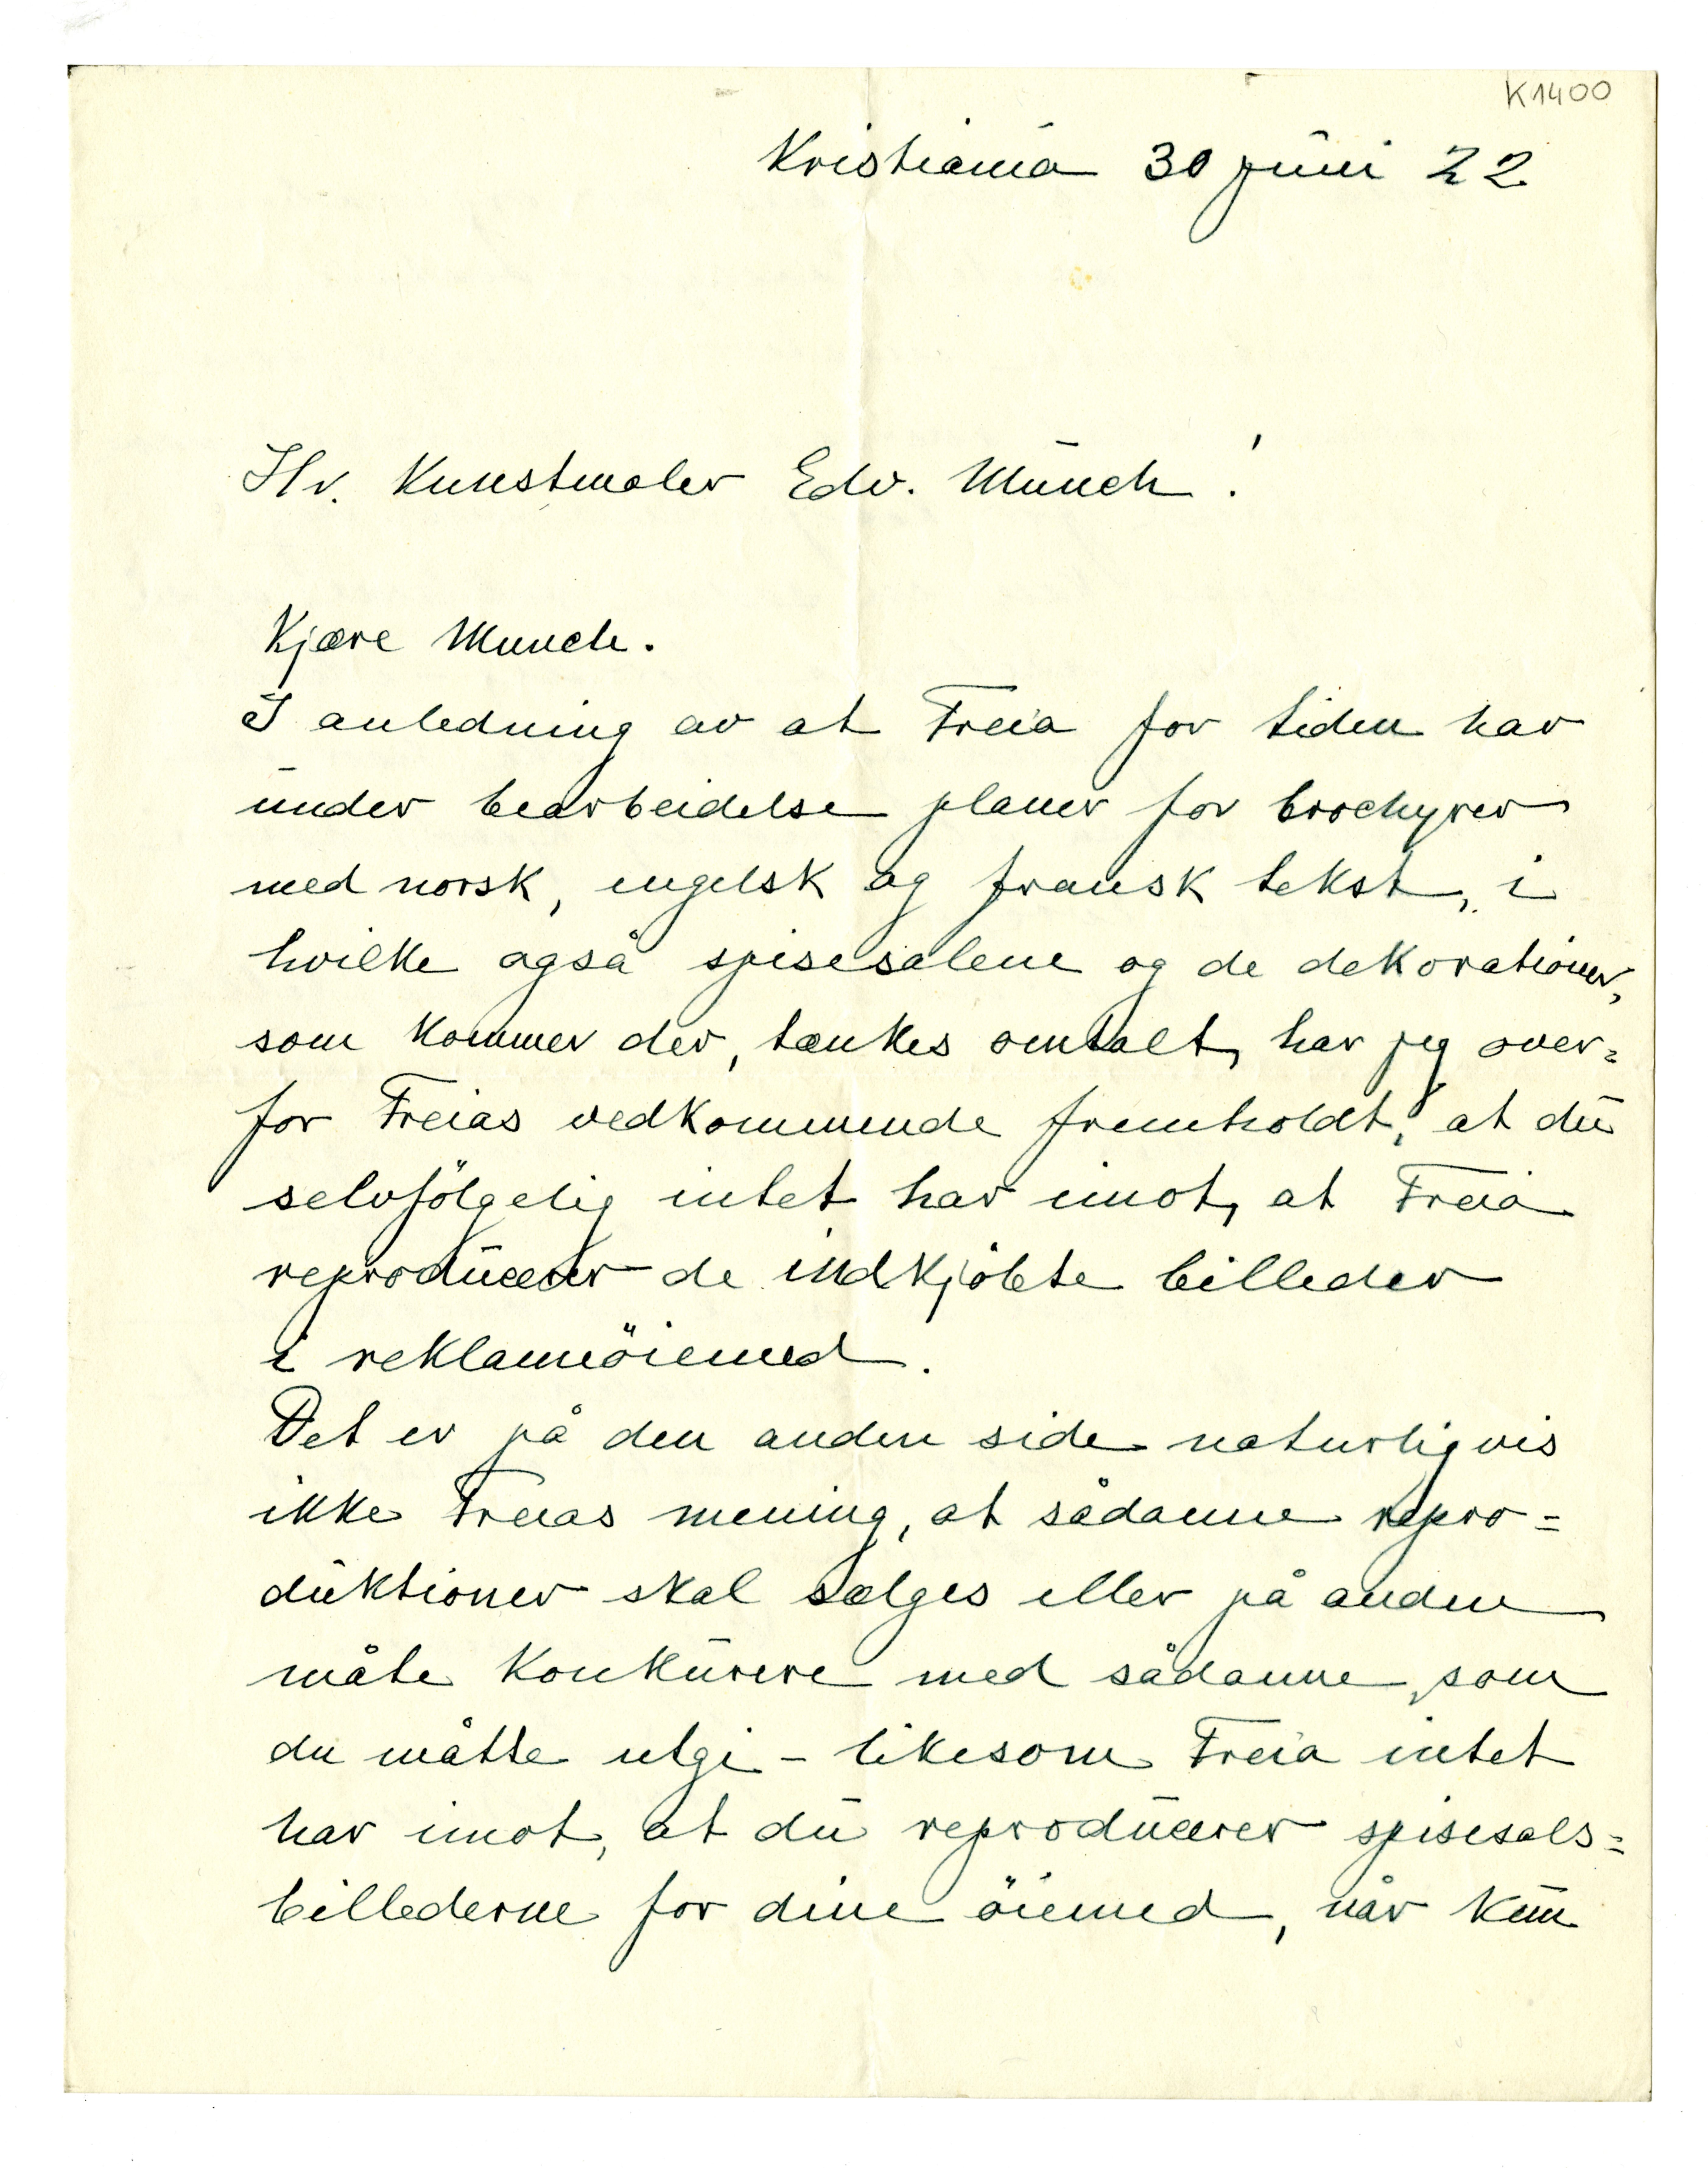 K1400
Kristiania 30 juni 22.
Hr. Kunstmaler Edv. Munch!
Kjære Munch.
I anledning av at Freia for tiden har
under bearbeidelse planer for brochyrer
med norsk, engelsk og fransk tekst, i
hvilke også spisesalene og de dekorationer,
som kommer der, tænkes omtalt, har jeg over=
for Freias vedkommende fremholdt, at du
selvfölgelig intet har imot, at Freia
reproducerer de indkjöbte billeder
i reklameöiemed.
Det er på den anden side naturligvis
ikke Freias mening, at sådanne repro=
duktioner skal sælges eller på anden
måte konkurere med sådanne, som
du måtte utgi – likesom Freia intet
har imot, at du reproducerer spisesals=
billederne for dine öiemed, når kun